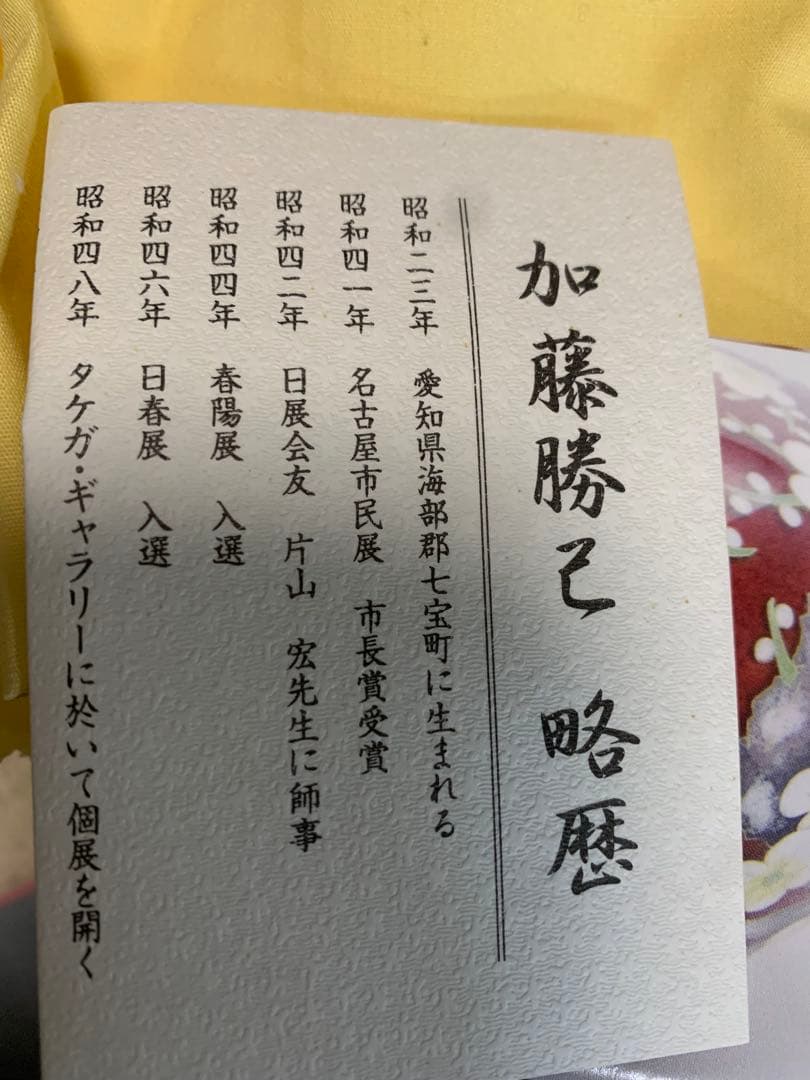 加藤勝己 略歴
昭和二三年 愛知県海部郡七宝町に生まれる
昭和四一年 名古屋市民展 市長賞受賞
昭和四二年 日展会友 片山 宏先生に師事
昭和四四年 春陽展 入選
昭和四六年 日春展 入選
昭和四八年 タケガ・ギャラリーに於いて個展を開く